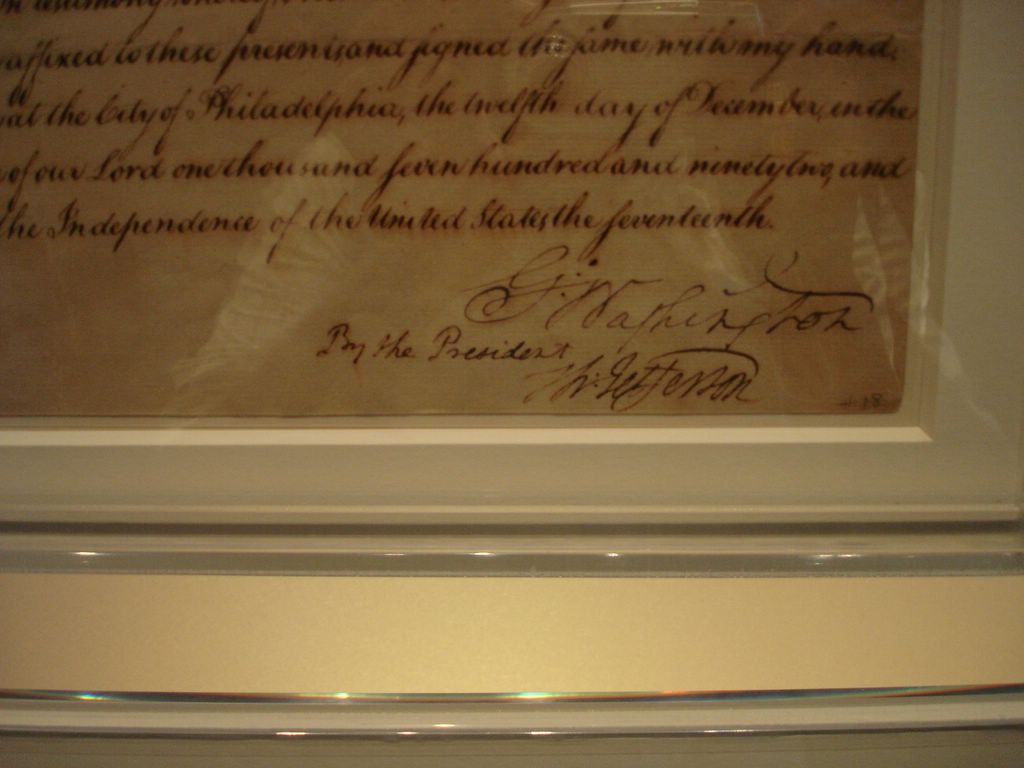 In testimony whereof,
affixed to these presents, and signed the same with my hand,
at the City of Philadelphia, the twelfth day of December, in the
of our Lord one thousand seven hundred and ninety two, and
the Independence of the United States, the seventeenth.
G:Washington
By the President
Th:Jefferson